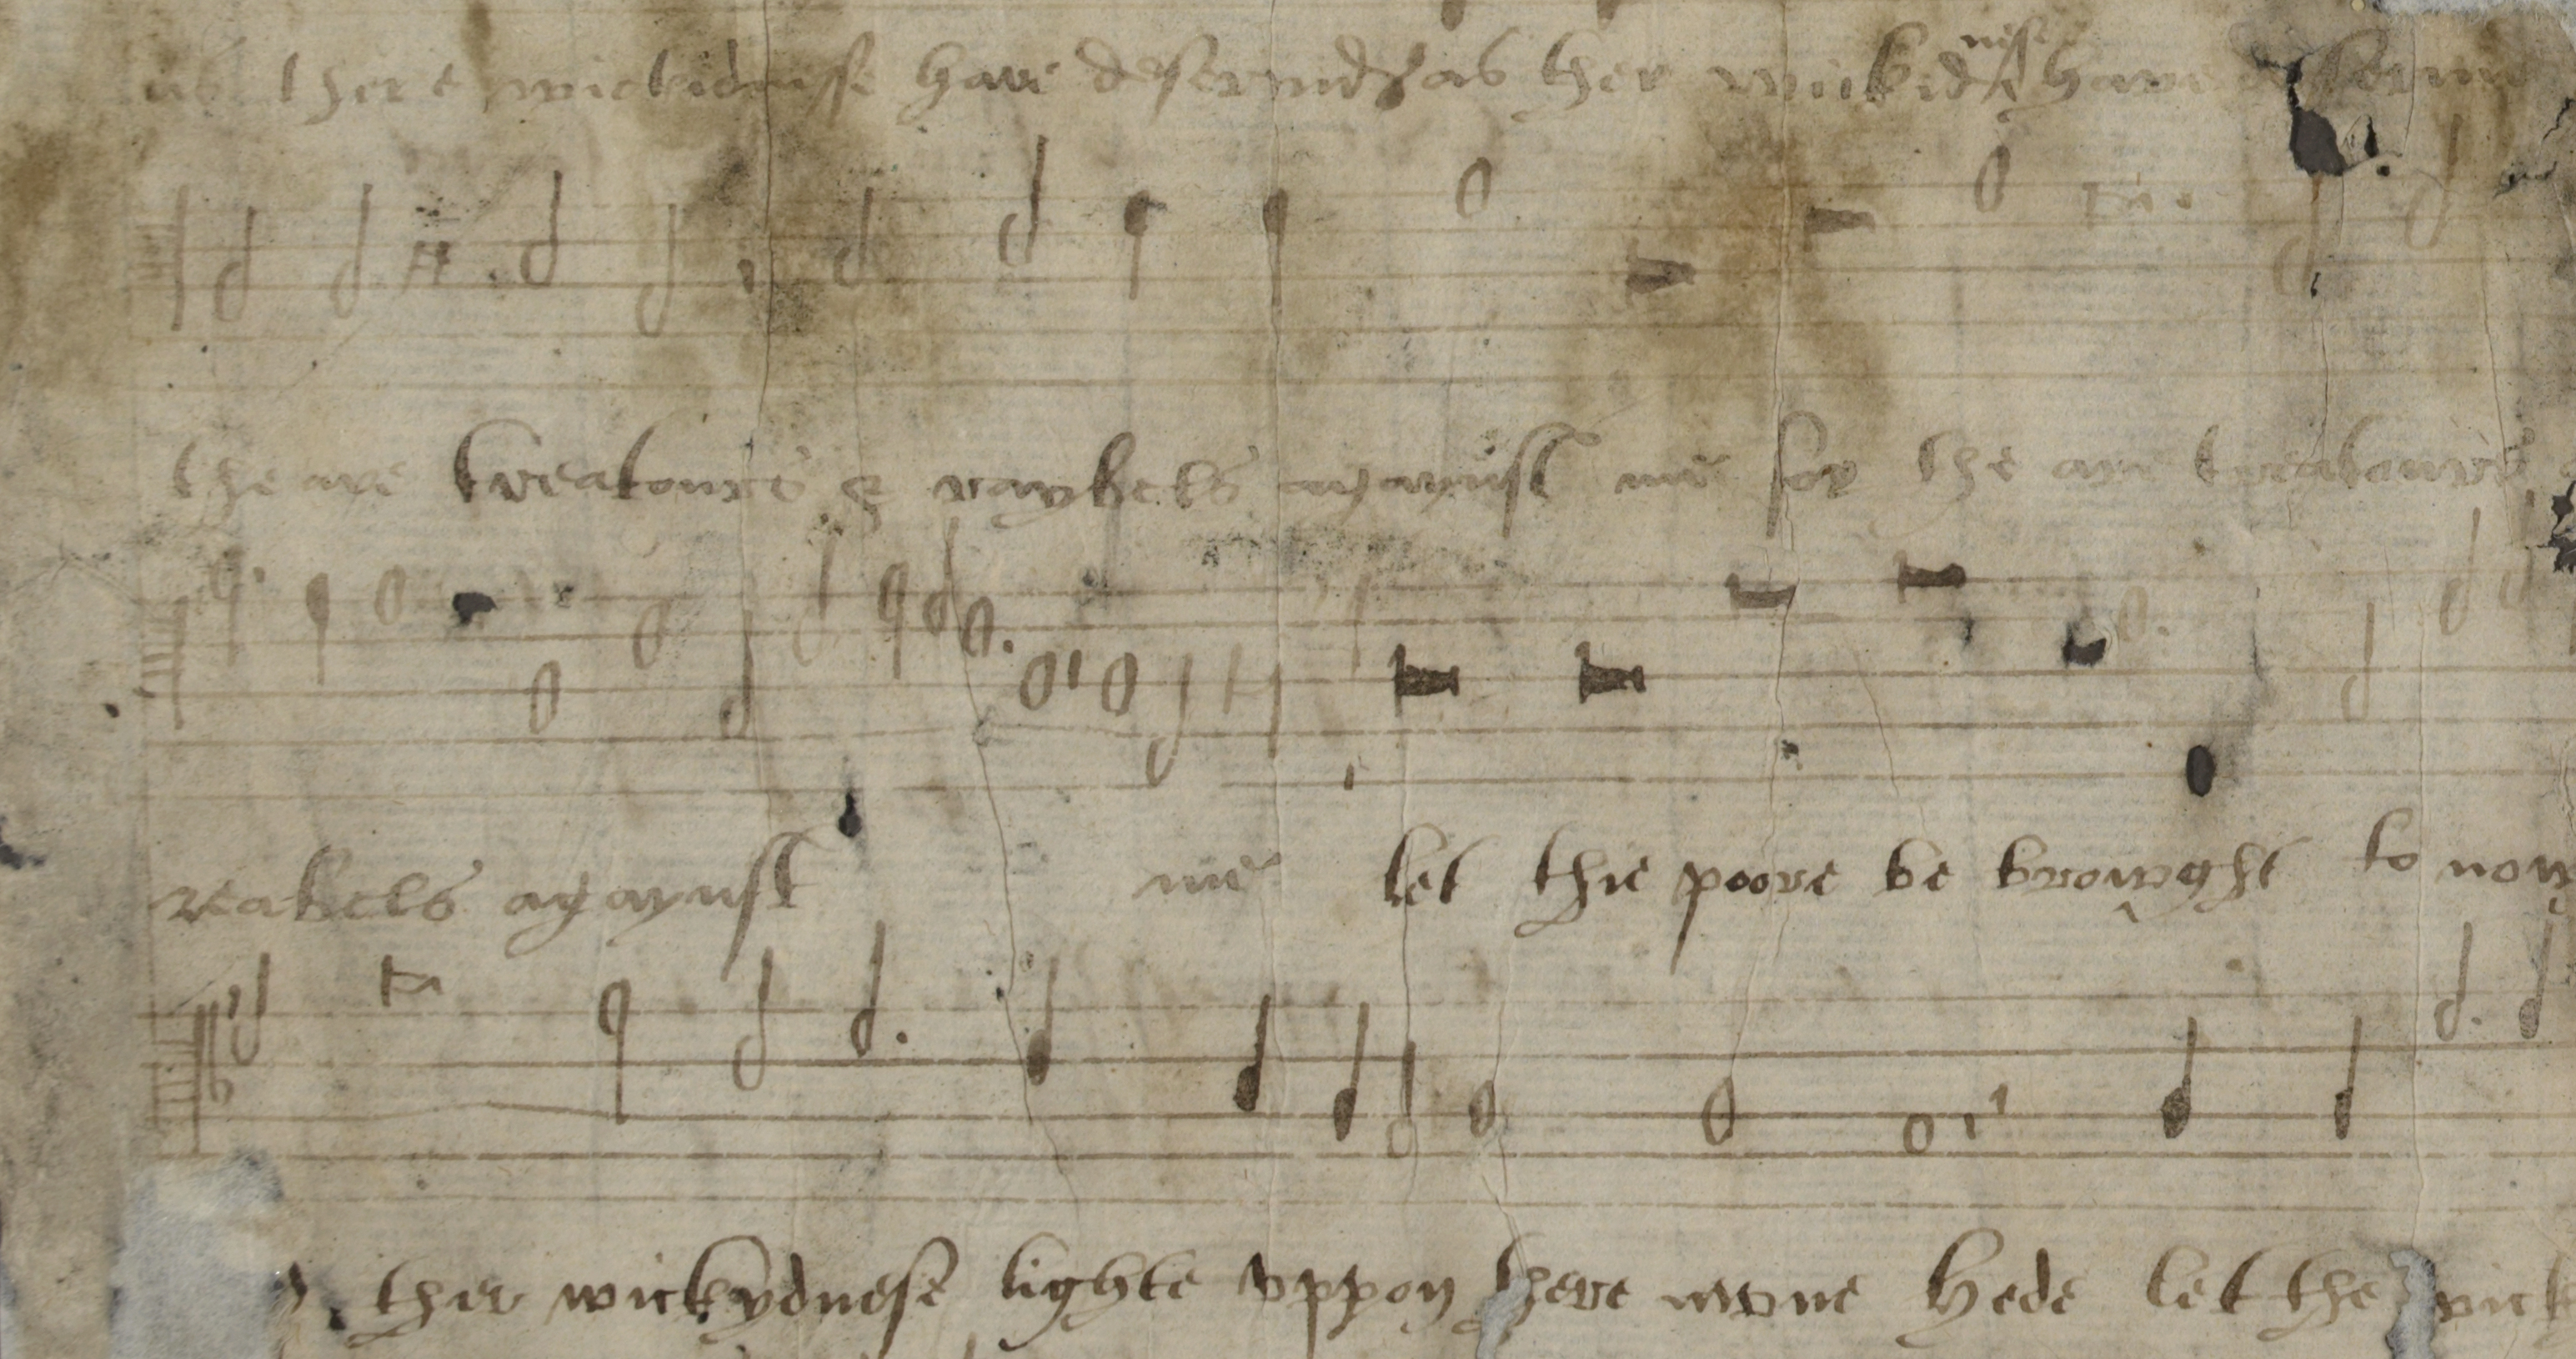 as there wickidnesse have deservid & as ther wickidnese have
the are treatours & raybels agaynst me for the are treatours
reabels agaynst me let thie poore be browght to
ther wickydnese lighte vppon there owne hede let the wick